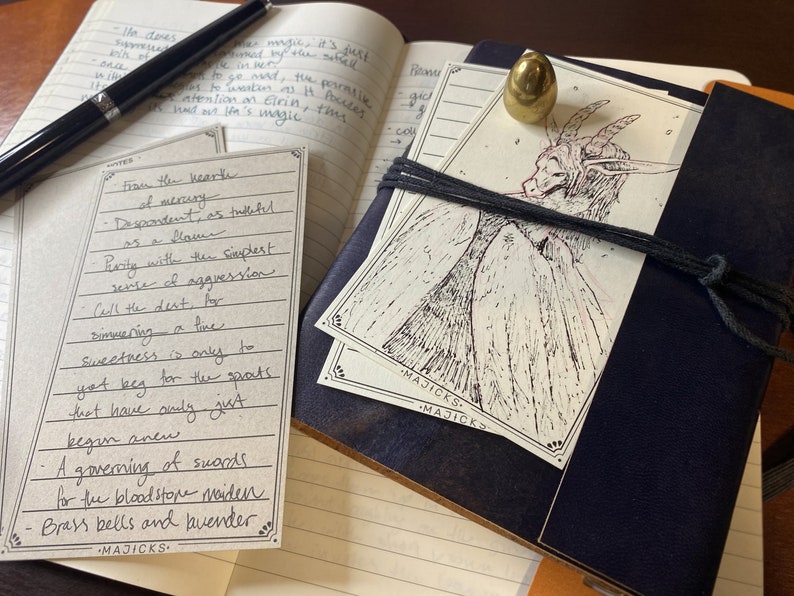 - Ita does
magic, it's just
suppressed
by the small
bits of
once
in her
to go mad, the parasite
to weaken as it focuses
attention on Eirin, this
its hold on Ita's magic
NOTES
- from the hearth
of mercury
- Despondent, as truthful
as a flower
- Purity with the simplest
sense of aggression
- Call the dust, for
simmering a fine
sweetness is only to
beg for the sprouts
that have only just
begun anew
- A governing of swords
for the bloodstone maiden
- Brass bells and lavender
·MAJICKS·
·MAJICKS·
·MAJICKS·